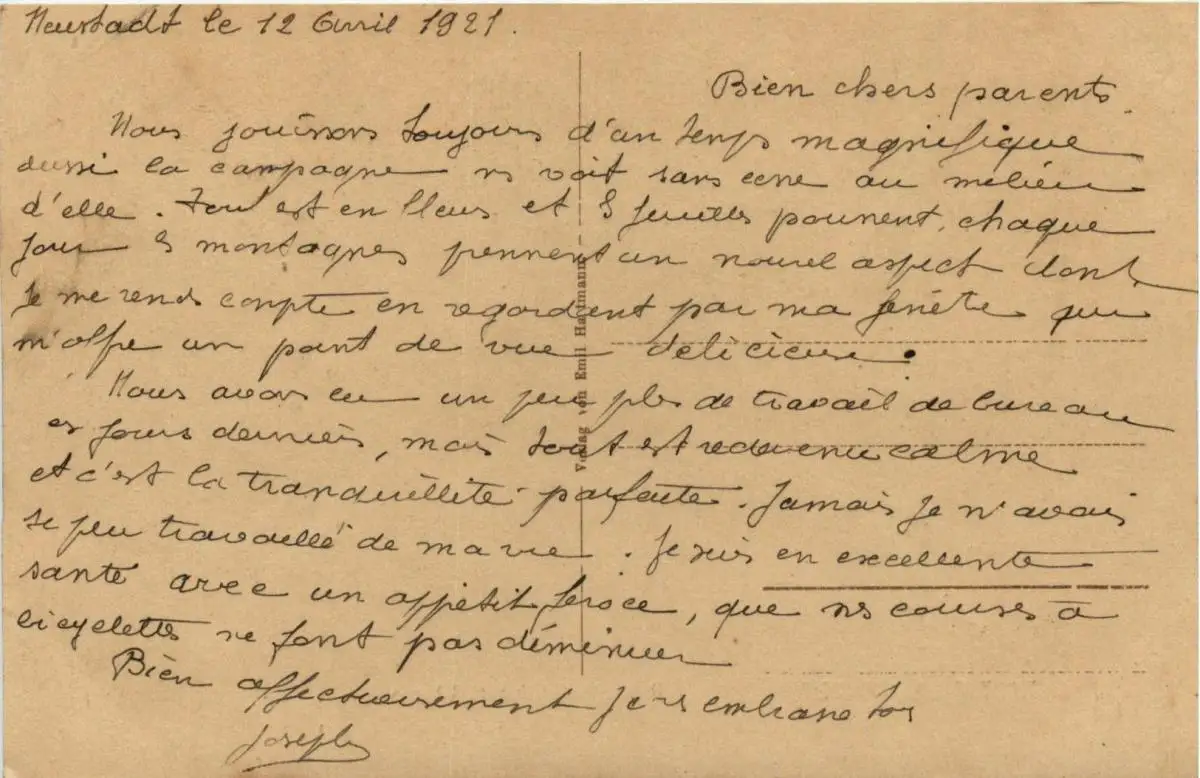 Neustadt le 12 Avril 1921.
Bien chers parents.
Nous jouissons toujours d'un temps magnifique
aussi la campagne ns voit sans cesse au milieu
d'elle. Tout est en fleurs et les feuilles poussent, chaque
jour les montagnes prennent un nouvel aspect dont
je me rends compte en regardant par ma fenêtre qui
m'offre un point de vue délicieux.
Nous avons eu un peu plus de travail de bureau
ces jours derniers, mais tout est redevenu calme
et c'est la tranquillité parfaite. Jamais je n'avais
si peu travaillé de ma vie. Je suis en excellente
santé avec un appétit féroce, que nos courses à
bicyclettes ne font pas diminuer
Bien affectueusement je vs embrasse tous
Joseph
Verlag von Emil Hartmann